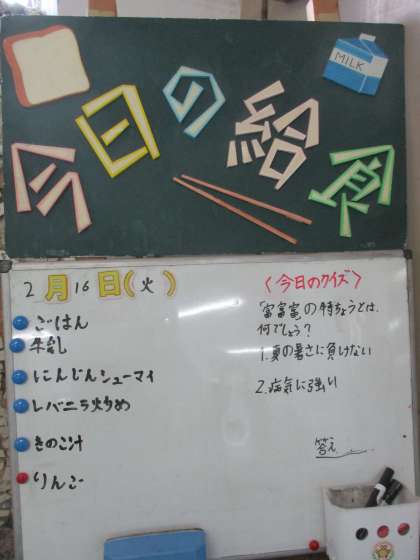 今日の給食
MILK
2月16日(火)
ごはん
牛乳
にんじんシューマイ
レバニラ炒め
きのこ汁
りんご
〈今日のクイズ〉
「富富富」の特ちょうとは、
何でしょう？
1.夏の暑さに負けない
2.病気に強い
答え